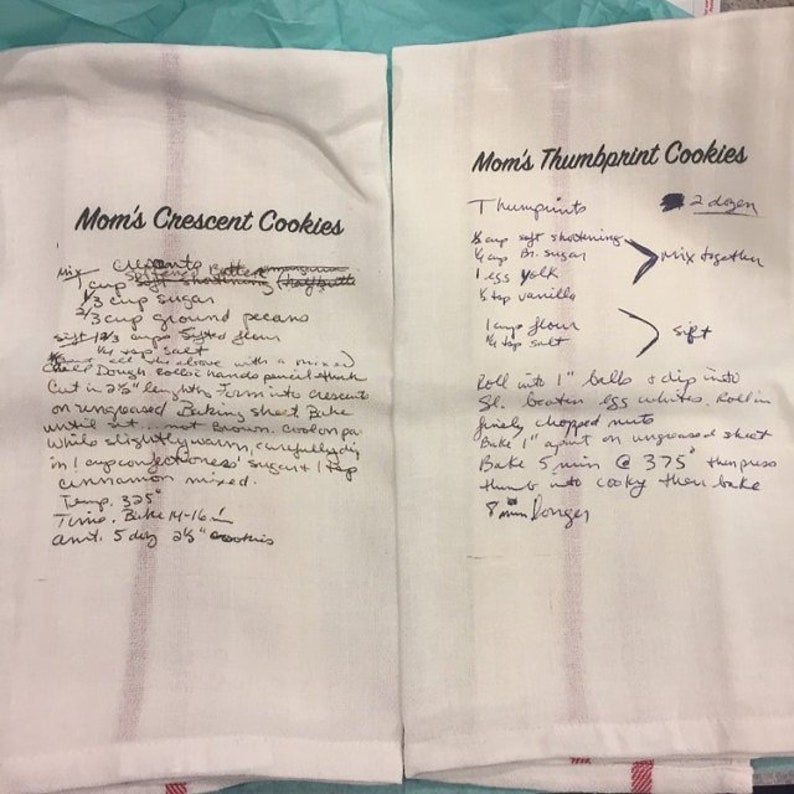 Mom's Crescent Cookies
Crescents
Softened Butter
Mix
1 cup soft shortening (half butter
1/3 cup sugar
2/3 cup ground pecans
sift 1 2/3 cups sifted flour
1/4 tsp salt
all the above with a mixed
Chill Dough Roll hands pencil thick
Cut in 2½" lengths Form into crescents
on ungreased Baking sheet Bake
until set... not Brown. Cool on pan
While slightly warm, carefully dip
in 1 cup confectioness' sugar + 1 tsp
cinnamon mixed.
Temp. 325°
Time. Bake 14-16 min
amt. 5 doz 2½" cookies
Mom's Thumbprint Cookies
Thumprints 2 dozen
cup soft shortening
¼ cup Br. sugar
1 egg yolk
½ tsp vanilla
mix together
1 cup flour
¼ tsp salt
sift
Roll into 1" balls & dip into
Sl. beaten egg whites. Roll in
finely chopped nuts
Bake 1" apart on ungreased sheet
Bake 5 min @ 375° then press
thumb into cooky then bake
8 min longer